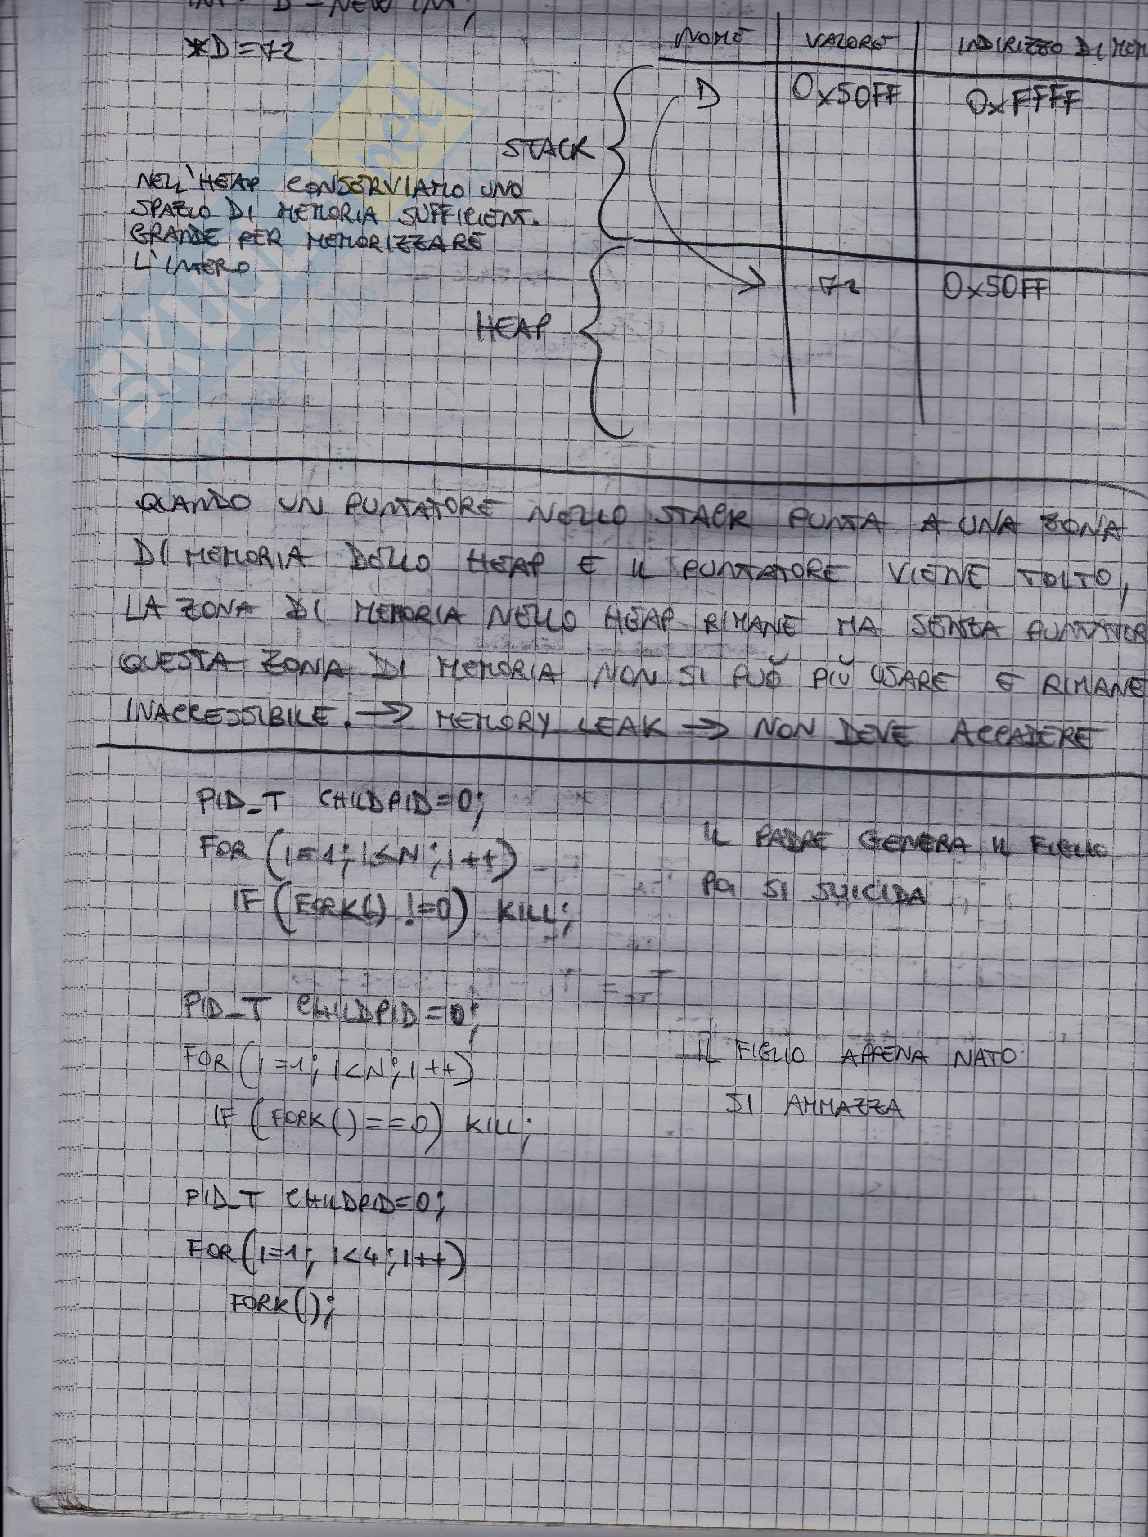 INT * D = NEW INT;
*D = 72
NOME VALORE INDIRIZZO DI MEM
D 0x50FF 0xFFFF
STACK
NELL'HEAP CONSERVIAMO UNO
SPAZIO DI MEMORIA SUFFICIENT.
GRANDE PER MEMORIZZARE
L'INTERO
72 0x50FF
HEAP
QUANDO UN PUNTATORE NELLO STACK PUNTA A UNA ZONA
DI MEMORIA DELLO HEAP E IL PUNTATORE VIENE TOLTO,
LA ZONA DI MEMORIA NELLO HEAP RIMANE MA SENZA PUNTATOR
QUESTA ZONA DI MEMORIA NON SI PUÒ PIÙ USARE E RIMANE
INACCESSIBILE. → MEMORY LEAK → NON DEVE ACCADERE
PID_T CHILDPID=0;
FOR (I=1; I≤N; I++)
IF (FORK() !=0) KILL;
IL PADRE GENERA IL FIGLIO
POI SI SUICIDA
PID_T CHILDPID=0;
FOR (I=1; I<N; I++)
IF (FORK()==0) KILL;
IL FIGLIO APPENA NATO
SI AMMAZZA
PID_T CHILDPID=0;
FOR (I=1; I<4; I++)
FORK();